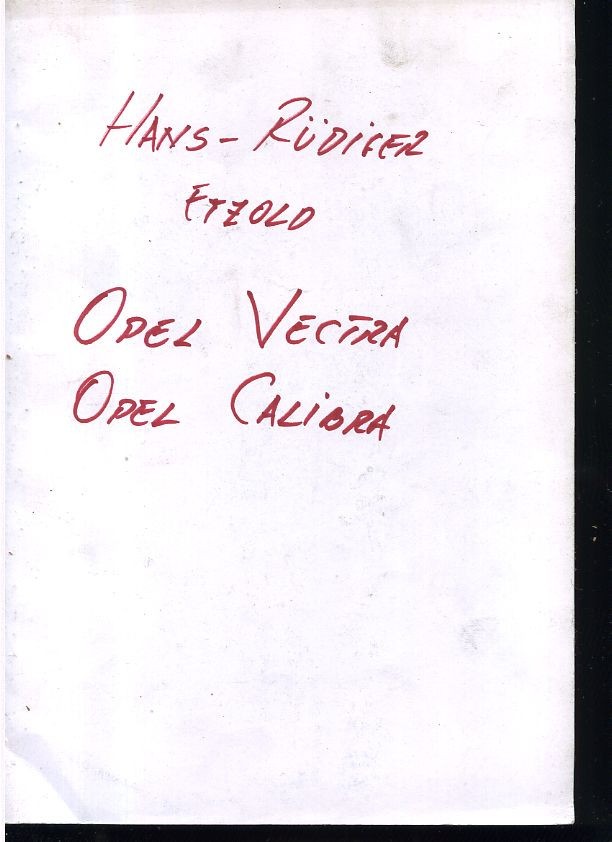 HANS-RÜDIGER
ETZOLD
OPEL VECTRA
OPEL CALIBRA